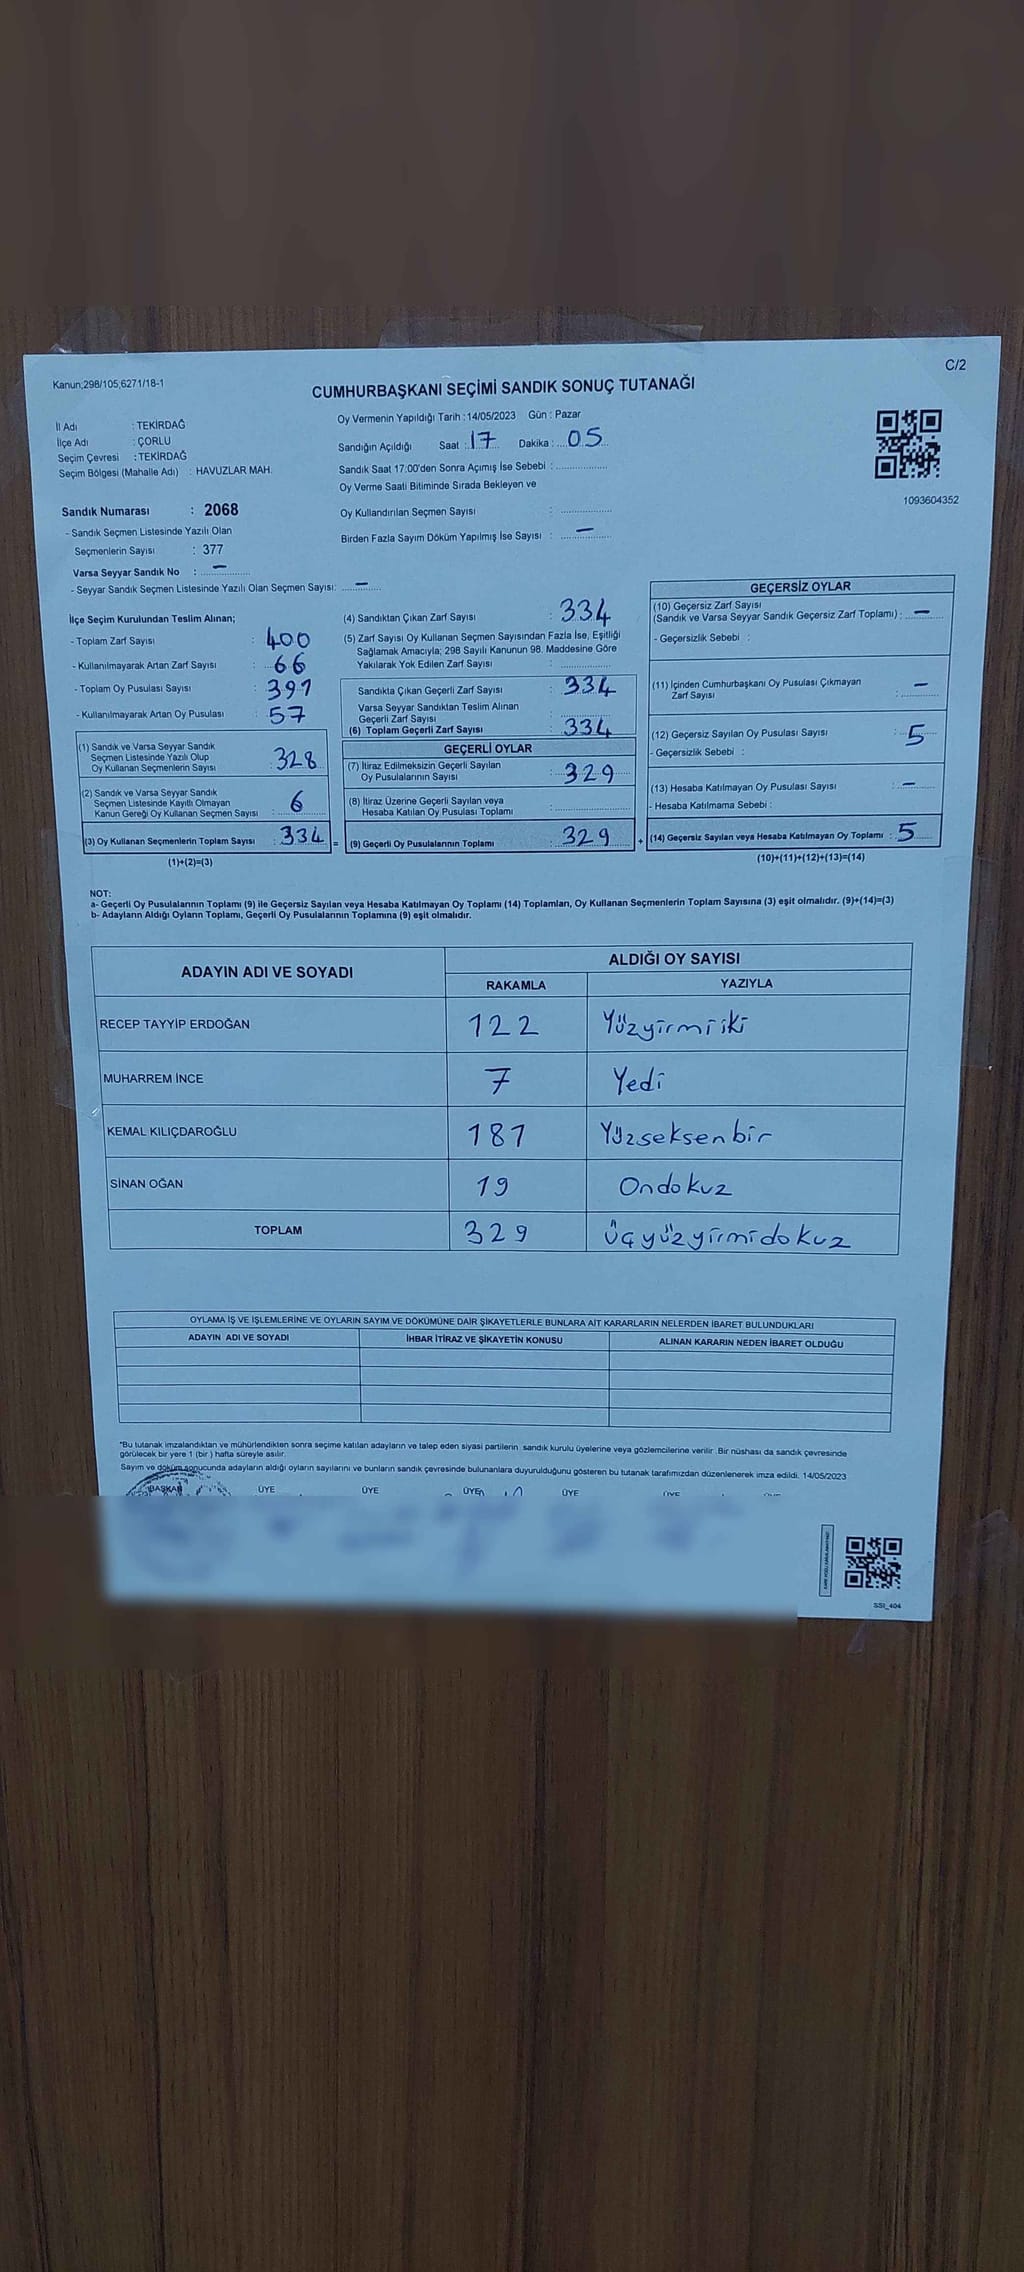 C/2
Kanun;298/105,6271/18-1
CUMHURBAŞKANI SEÇİMİ SANDIK SONUÇ TUTANAĞI
İl Adı : TEKİRDAĞ
İlçe Adı : ÇORLU
Seçim Çevresi : TEKİRDAĞ
Seçim Bölgesi (Mahalle Adı) : HAVUZLAR MAH.
Sandık Numarası : 2068
- Sandık Seçmen Listesinde Yazılı Olan
Seçmenlerin Sayısı : 377
Varsa Seyyar Sandık No : —
- Seyyar Sandık Seçmen Listesinde Yazılı Olan Seçmen Sayısı: —
Oy Vermenin Yapıldığı Tarih : 14/05/2023 Gün : Pazar
Sandığın Açıldığı Saat : 17 Dakika : 05
Sandık Saat 17:00'den Sonra Açımış İse Sebebi :
Oy Verme Saati Bitiminde Sırada Bekleyen ve
Oy Kullandırılan Seçmen Sayısı :
Birden Fazla Sayım Döküm Yapılmış İse Sayısı : —
1093604352
İlçe Seçim Kurulundan Teslim Alınan;
- Toplam Zarf Sayısı : 400
- Kullanılmayarak Artan Zarf Sayısı : 66
- Toplam Oy Pusulası Sayısı : 391
- Kullanılmayarak Artan Oy Pusulası : 57
(1) Sandık ve Varsa Seyyar Sandık
Seçmen Listesinde Yazılı Olup
Oy Kullanan Seçmenlerin Sayısı : 328
(2) Sandık ve Varsa Seyyar Sandık
Seçmen Listesinde Kayıtlı Olmayan
Kanun Gereği Oy Kullanan Seçmen Sayısı : 6
(3) Oy Kullanan Seçmenlerin Toplam Sayısı : 334 =
(1)+(2)=(3)
(4) Sandıktan Çıkan Zarf Sayısı : 334
(5) Zarf Sayısı Oy Kullanan Seçmen Sayısından Fazla İse, Eşitliği
Sağlamak Amacıyla; 298 Sayılı Kanunun 98. Maddesine Göre
Yakılarak Yok Edilen Zarf Sayısı :
Sandıkta Çıkan Geçerli Zarf Sayısı : 334
Varsa Seyyar Sandıktan Teslim Alınan
Geçerli Zarf Sayısı :
(6) Toplam Geçerli Zarf Sayısı : 334
GEÇERLİ OYLAR
(7) İtiraz Edilmeksizin Geçerli Sayılan
Oy Pusulalarının Sayısı : 329
(8) İtiraz Üzerine Geçerli Sayılan veya
Hesaba Katılan Oy Pusulası Toplamı :
(9) Geçerli Oy Pusulalarının Toplamı : 329 +
GEÇERSİZ OYLAR
(10) Geçersiz Zarf Sayısı
(Sandık ve Varsa Seyyar Sandık Geçersiz Zarf Toplamı) : —
- Geçersizlik Sebebi :
(11) İçinden Cumhurbaşkanı Oy Pusulası Çıkmayan
Zarf Sayısı : —
(12) Geçersiz Sayılan Oy Pusulası Sayısı : 5
- Geçersizlik Sebebi :
(13) Hesaba Katılmayan Oy Pusulası Sayısı : —
- Hesaba Katılmama Sebebi :
(14) Geçersiz Sayılan veya Hesaba Katılmayan Oy Toplamı : 5
(10)+(11)+(12)+(13)=(14)
NOT:
a- Geçerli Oy Pusulalarının Toplamı (9) ile Geçersiz Sayılan veya Hesaba Katılmayan Oy Toplamı (14) Toplamları, Oy Kullanan Seçmenlerin Toplam Sayısına (3) eşit olmalıdır. (9)+(14)=(3)
b- Adayların Aldığı Oyların Toplamı, Geçerli Oy Pusulalarının Toplamına (9) eşit olmalıdır.
ADAYIN ADI VE SOYADI ALDIĞI OY SAYISI
RAKAMLA YAZIYLA
RECEP TAYYİP ERDOĞAN 122 Yüzyirmiiki
MUHARREM İNCE 7 Yedi
KEMAL KILIÇDAROĞLU 181 Yüzseksenbir
SİNAN OĞAN 19 Ondokuz
TOPLAM 329 Üçyüzyirmidokuz
OYLAMA İŞ VE İŞLEMLERİNE VE OYLARIN SAYIM VE DÖKÜMÜNE DAİR ŞİKAYETLERLE BUNLARA AİT KARARLARIN NELERDEN İBARET BULUNDUKLARI
ADAYIN ADI VE SOYADI İHBAR İTİRAZ VE ŞİKAYETİN KONUSU ALINAN KARARIN NEDEN İBARET OLDUĞU
*Bu tutanak imzalandıktan ve mühürlendikten sonra seçime katılan adayların ve talep eden siyasi partilerin sandık kurulu üyelerine veya gözlemcilerine verilir .Bir nüshası da sandık çevresinde
görülecek bir yere 1 (bir ) hafta süreyle asılır.
Sayım ve döküm sonucunda adayların aldığı oyların sayılarını ve bunların sandık çevresinde bulunanlara duyurulduğunu gösteren bu tutanak tarafımızdan düzenlenerek imza edildi. 14/05/2023
BAŞKAN ÜYE ÜYE ÜYE ÜYE ÜYE
SSİ_404